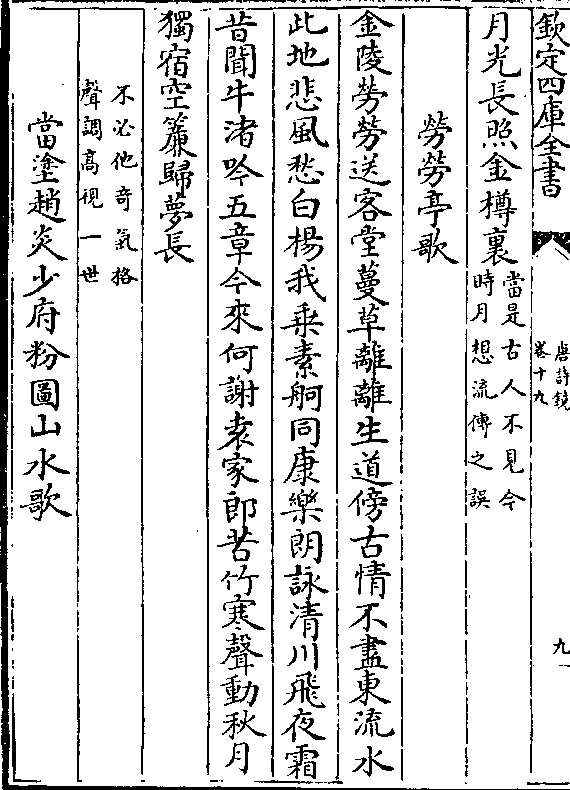 欽定四庫全書
唐詩鏡
卷十九
九
月光長照金樽裏當是古人不見今
時月想流傳之誤
勞勞亭歌
金陵勞勞送客堂蔓草離離生道傍古情不盡東流水
此地悲風愁白楊我乗素舸同康樂朗詠清川飛夜霜
昔聞牛渚吟五章今來何謝袁家郎苦竹寒聲動秋月
獨宿空簾歸夢長
不必他奇氣格
聲調髙視一世
當塗趙炎少府粉圖山水歌